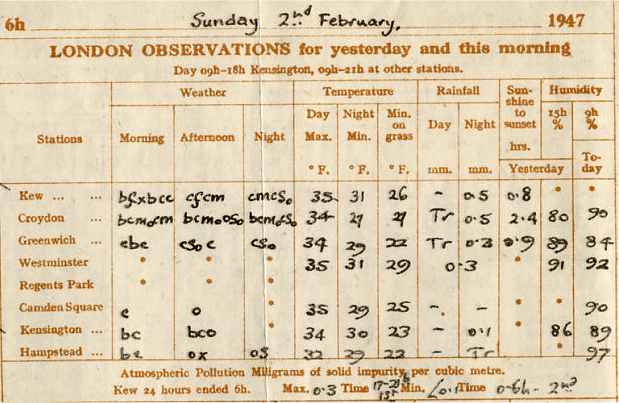 6h Sunday 2nd February, 1947
LONDON OBSERVATIONS for yesterday and this morning
Day 09h-18h Kensington, 09h-21h at other stations.
Weather Temperature Rainfall Sun-shine to sunset hrs. Humidity
Stations Morning Afternoon Night Day Max. Night Min. Min. on grass Day Night 15h % 9h %
° F. ° F. ° F. mm. mm. Yesterday To-day
Kew ... ... cfcm 35 31 26 - 0.5 0.8 * *
Croydon ... 34 Tr 0.5 2.4 80 90
Greenwich ... cs₀c cs₀ 34 29 22 Tr 0.3 0.9 89 84
Westminster * * * 35 31 29 0.3 * 91 92
Regents Park * * * * * *
Camden Square c o 35 29 25 - - * * 90
Kensington ... bc bco 34 30 23 - 0.1 * 86 89
Hampstead ... ox os 32 29 22 - Tr 97
Atmospheric Pollution Milligrams of solid impurity per cubic metre.
Kew 24 hours ended 6h. Max. 0.3 Time Min. Time 0-6h - 2nd